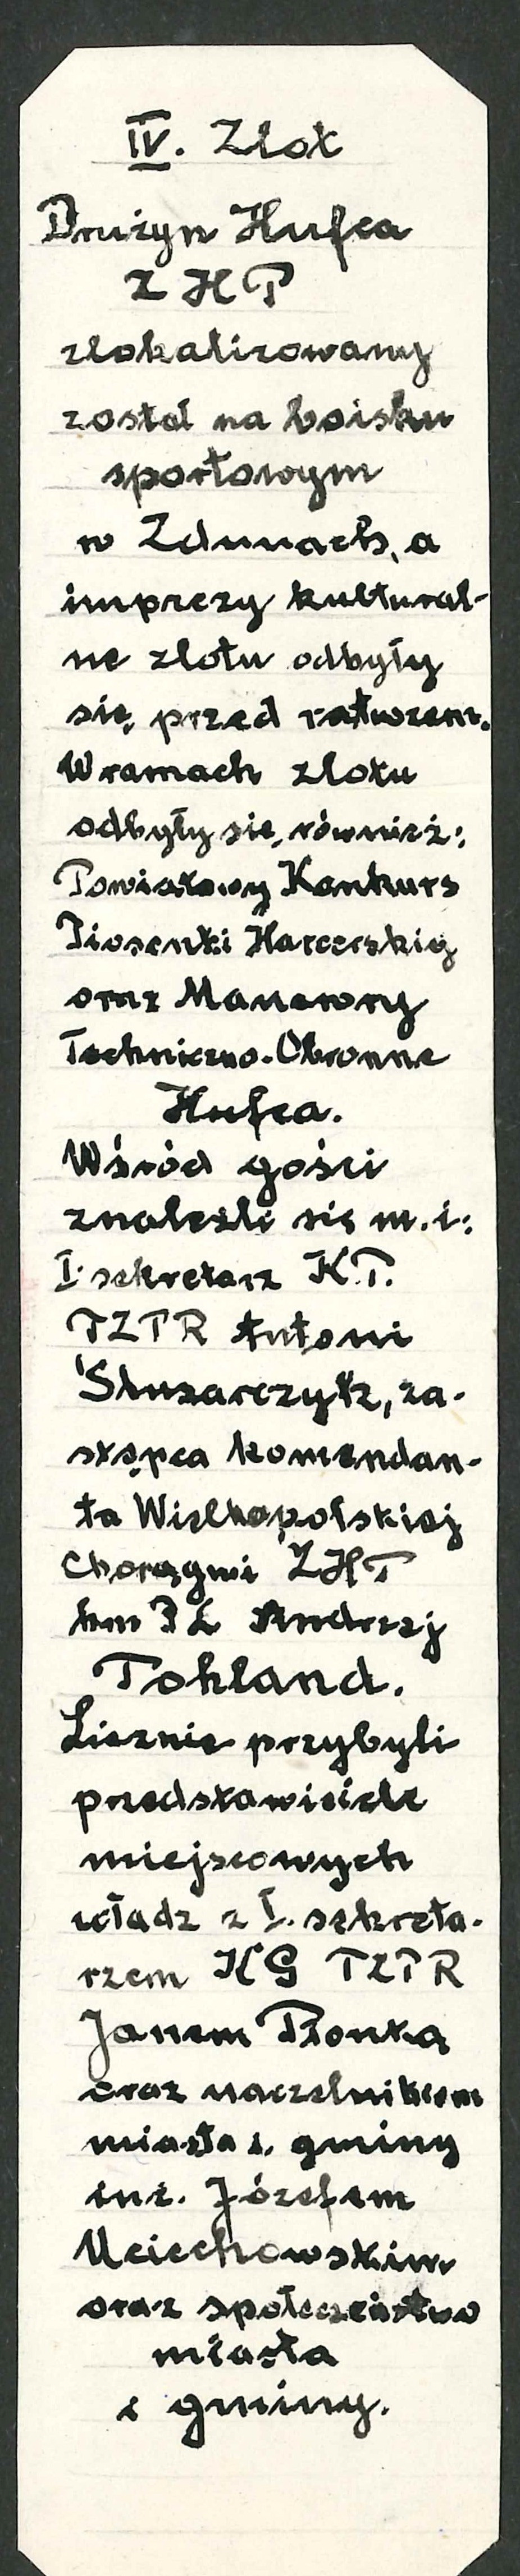 IV. Zlot
Drużyn Hufca
ZHP
zlokalizowany
został na boisku
sportowym
w Zdunach, a
imprezy kultural-
ne zlotu odbyły
się przed ratuszem.
W ramach zlotu
odbyły się również:
Powiatowy Konkurs
Piosenki Harcerskiej
oraz Manewry
Techniczno-Obronne
Hufca.
Wśród gości
znaleźli się m.i:
I sekretarz K.P.
PZPR Antoni
Ślusarczyk, za-
stępca komendan-
ta Wielkopolskiej
Chorągwi ZHP
hm PL Andrzej
Tokland.
Licznie przybyli
przedstawiciele
miejscowych
władz z I. sekreta-
rzem KG PZPR
Janem Płonką
oraz naczelnikiem
miasta i gminy
inż. Józefem
Uciechowskim
oraz społeczeństwo
miasta
i gminy.